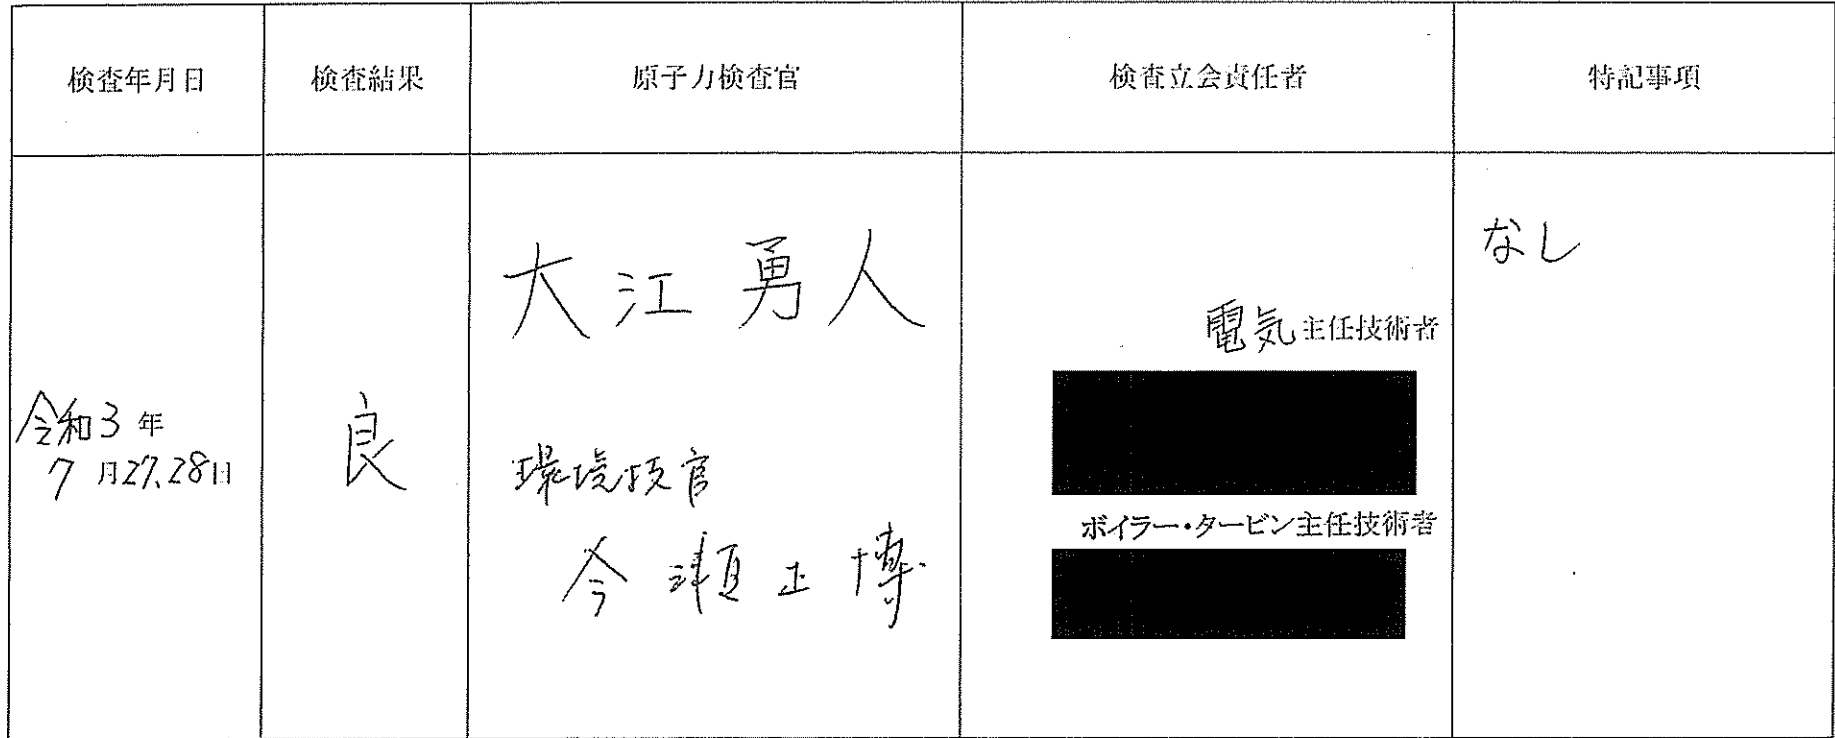 検査年月日
検査結果
原子力検査官
検査立会責任者
特記事項
令和3年
7月27,28日
良
大江 勇人
環境技官
今瀬正博
電気主任技術者
ボイラー・タービン主任技術者
なし